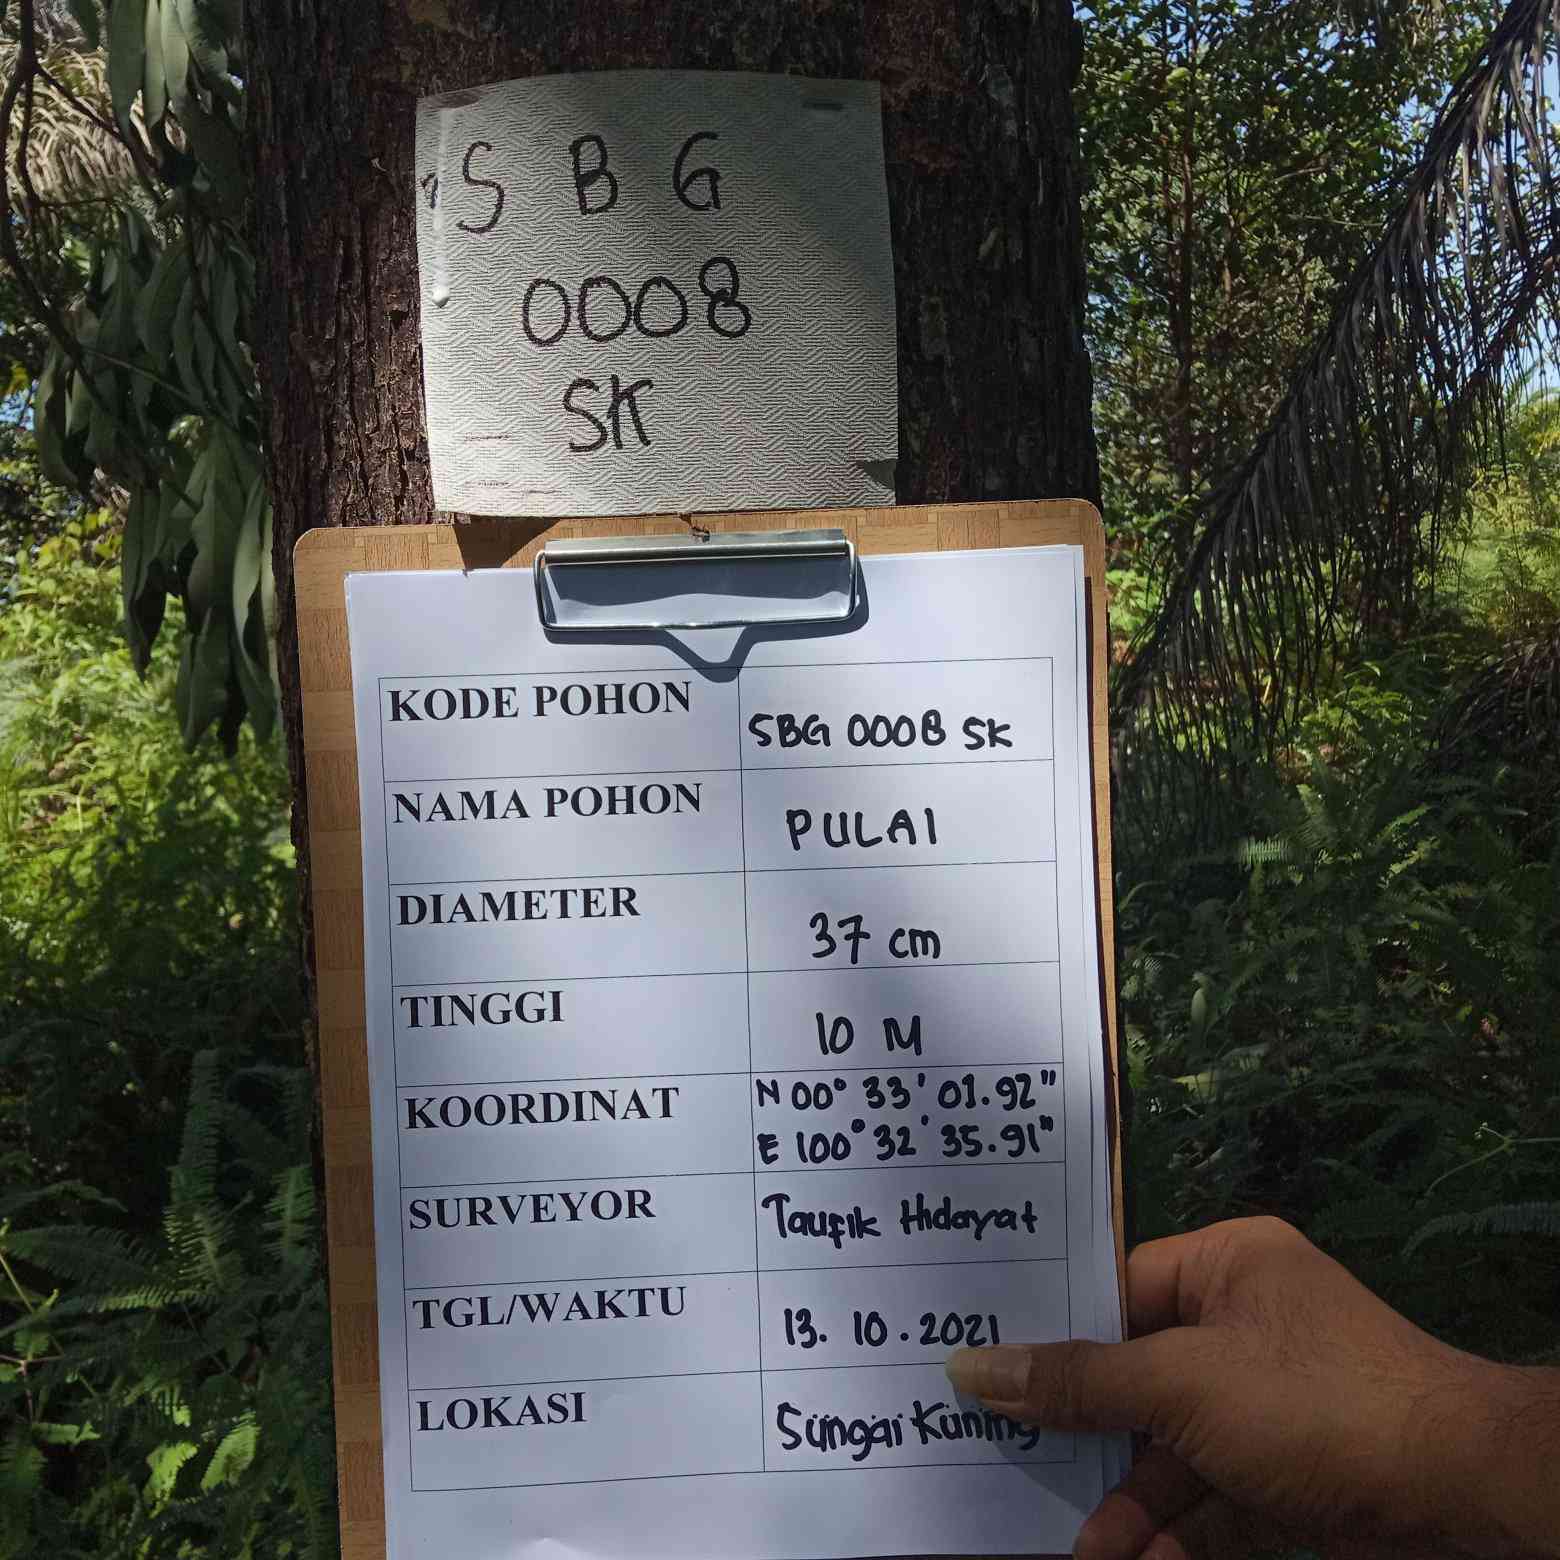 S B G
0008
SK
KODE POHON SBG 0008 SK
NAMA POHON PULAI
DIAMETER 37 cm
TINGGI 10 M
KOORDINAT N 00° 33' 01.92"
E 100° 32' 35.91"
SURVEYOR Taufik Hidayat
TGL/WAKTU 13. 10. 2021
LOKASI Sungai Kuning